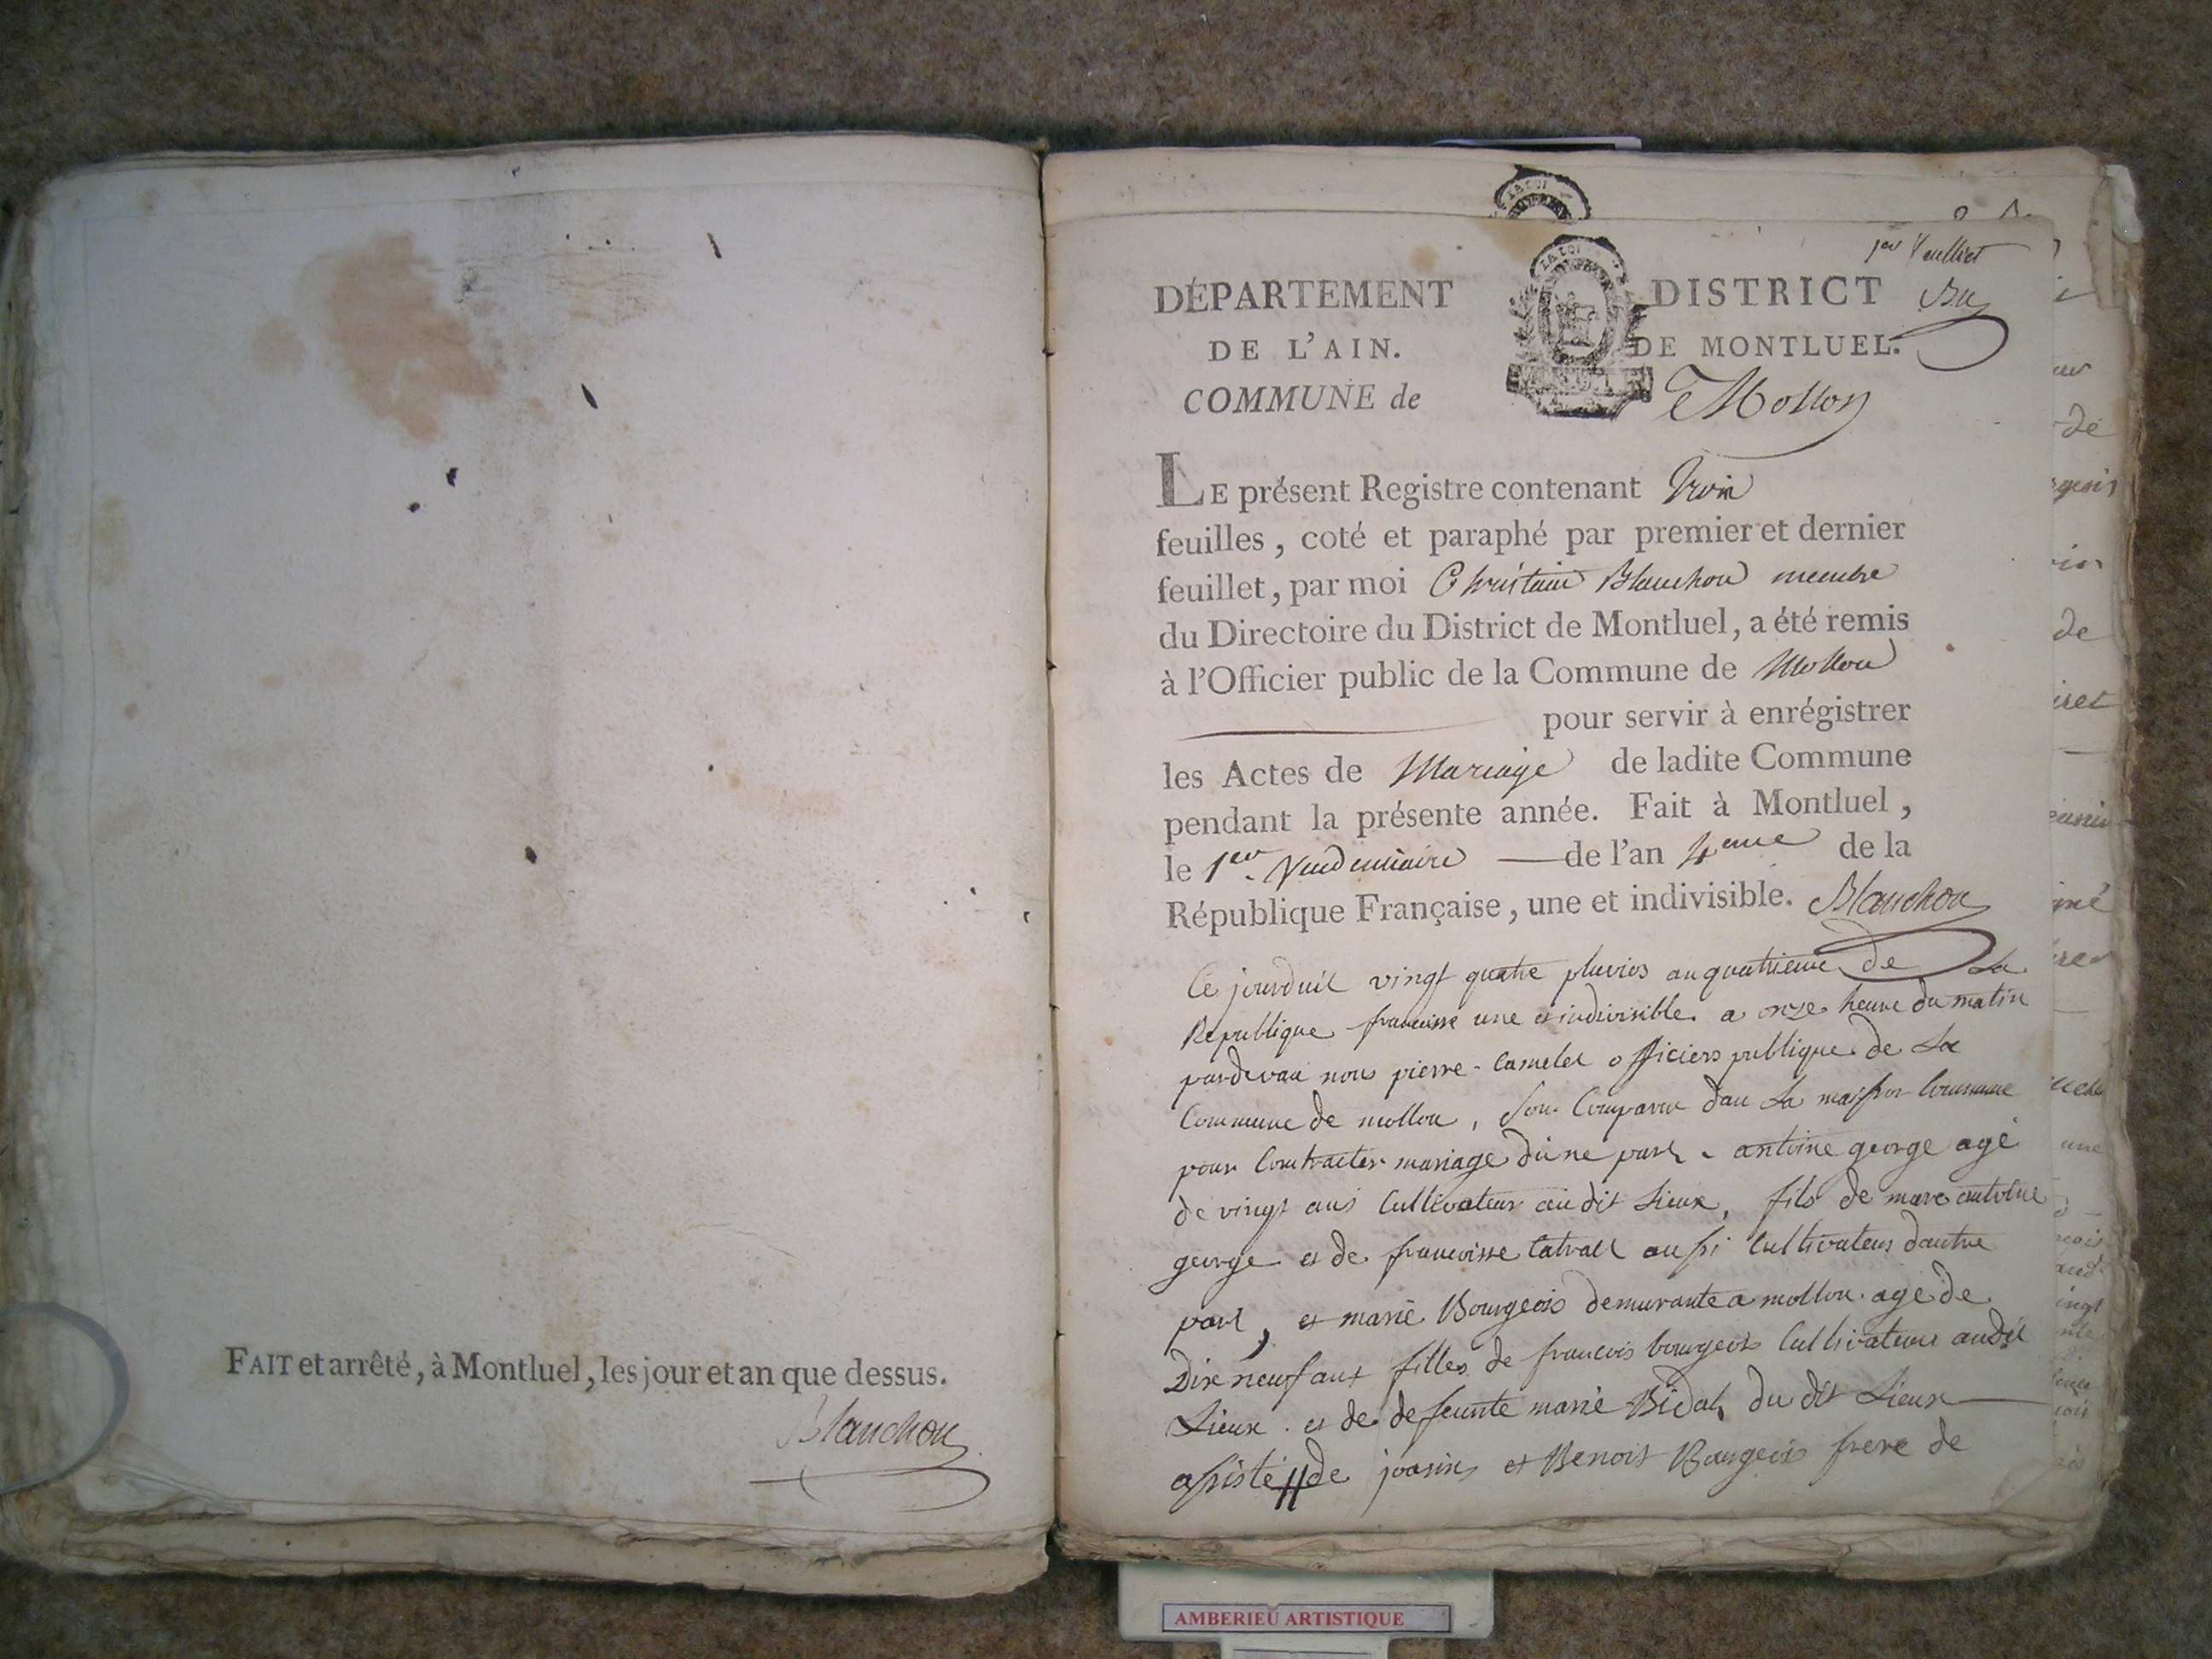 FAIT et arrêté, à Montluel, les jour et an que dessus.
Blanchon
1er feuillet
DÉPARTEMENT
DE L'AIN.
COMMUNE de
LA LOI
DISTRICT
DE MONTLUEL.
Mollon
LE présent Registre contenant trois
feuilles, coté et paraphé par premier et dernier
feuillet, par moi Christain Blanchon membre
du Directoire du District de Montluel, a été remis
à l'Officier public de la Commune de Mollon
pour servir à enrégistrer
les Actes de Mariage de ladite Commune
pendant la présente année. Fait à Montluel,
le 1er Vendemiaire de l'an 4eme de la
République Française, une et indivisible. Blanchon
Ce jourduit vingt quatre pluvios an quatrieme de La
Republique francoisse une et indivisible a onze heure du matin
pardevan nous pierre officiers publique de La
Commune de mollon, son Comparue dan La maison Commune
pour Contracter mariage d'une part antoine george agé
de vingt ans Cultivateur au dit Lieux, fils de marc antoine
george et de francoisse aussi Cultivateur dautre
part, et marie Bourgeois demurante a mollon age de
Dixneuf ans filles de francois bourgeois Cultivateur audit
Lieux et de defeunte marie Bidal du dit Lieux
assisté de joasin et Benoit Bourgeois frere de
AMBERIEU ARTISTIQUE